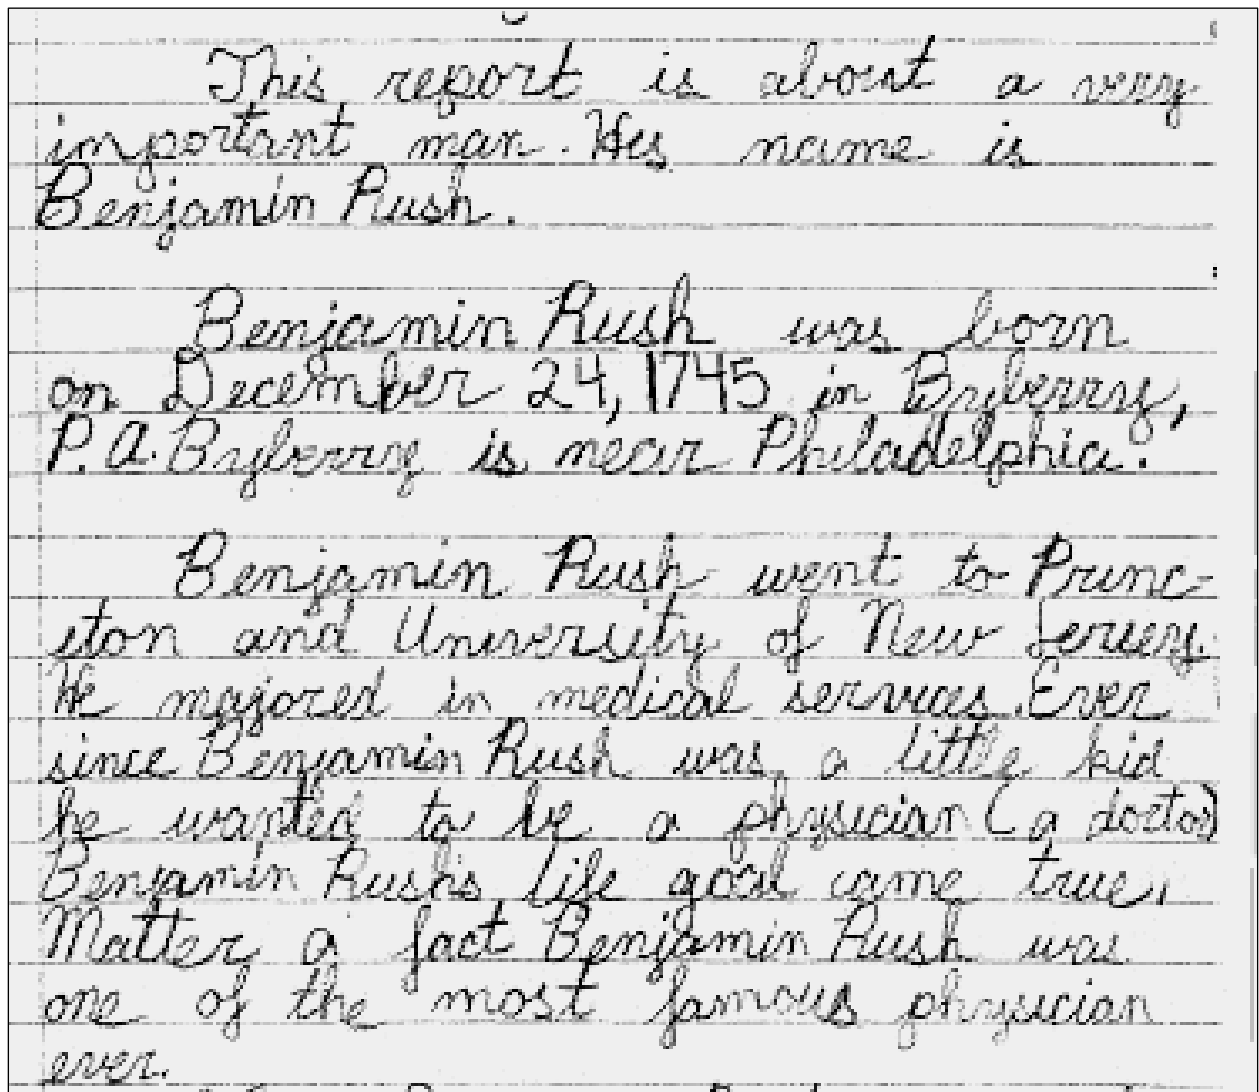 This report is about a very
important man. His name is
Benjamin Rush.
Benjamin Rush was born
on December 24, 1745 in Byberry,
P.A. Byberry is near Philadelphia.
Benjamin Rush went to Princ-
eton and University of New Jersey.
He majored in medical services. Ever
since Benjamin Rush was a little kid
he wanted to be a physician (a doctor)
Benjamin Rush's life goal came true.
Matter a fact Benjamin Rush was
one of the most famous physician
ever.